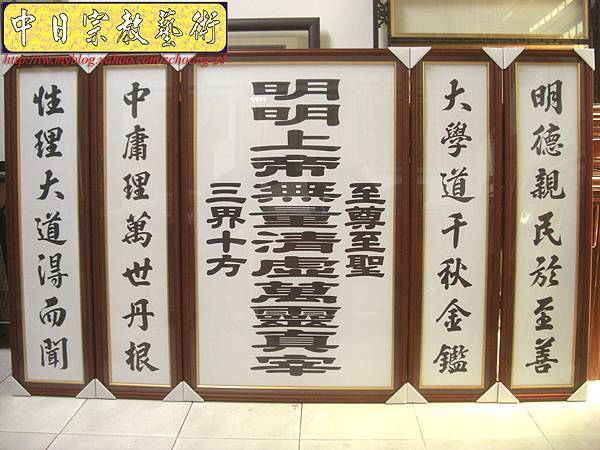 中日宗教藝術
http://tw.myblog.yahoo.com/cchoong-24
明德親民於至善
大學道千秋金鑑
至尊至聖
明明上帝無量清虛萬靈真宰
三界十方
中庸理萬世丹根
性理大道得而聞